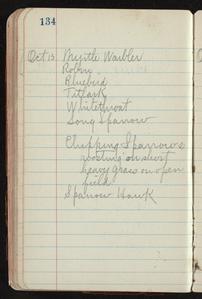 134
Oct 13. Myrtle Warbler
Robin
Bluebird
Titlark
Whitethroat
Song Sparrow
Chipping Sparrows
roosting on short
heavy grass on open
field
Sparrow Hawk